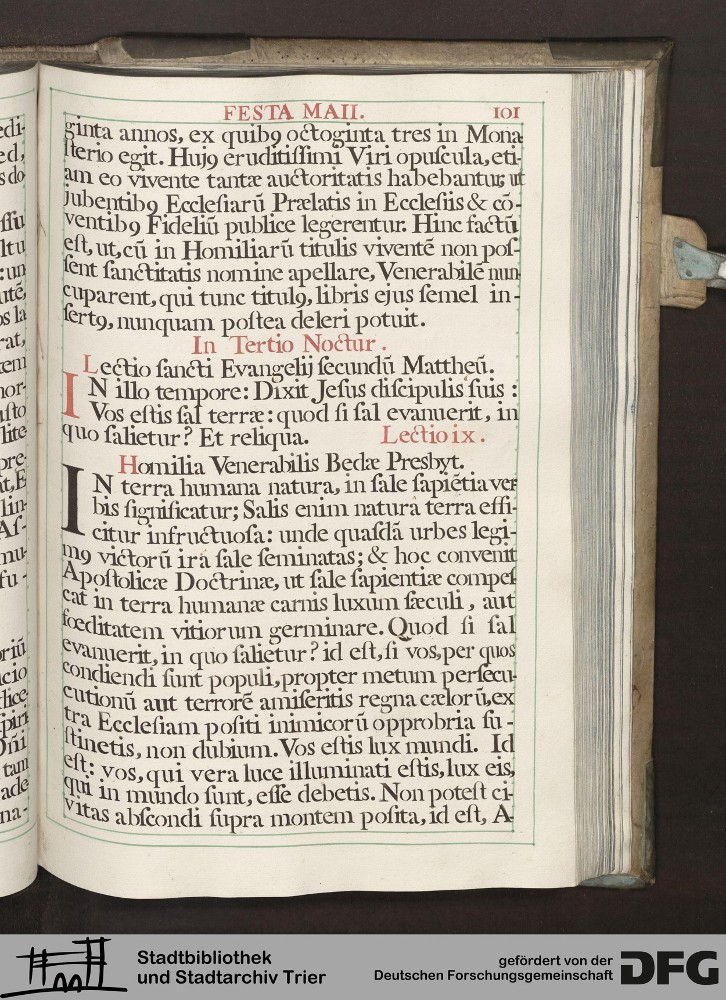 FESTA MAII. 101
ginta annos, ex quibꝰ octoginta tres in Mona
ſterio egit. Hujꝰ eruditiſſimi Viri opuſcula, eti-
am eo vivente tantæ auctoritatis habebantur, ut
jubentibꝰ Eccleſiarū Prælatis in Eccleſiis & cō-
ventibꝰ Fideliū publice legerentur. Hinc factū
eſt, ut, cū in Homiliarū titulis viventē non poſ-
ſent ſanctitatis nomine apellare, Venerabilē nun
cuparent, qui tunc titulꝰ, libris ejus ſemel in-
ſertꝰ, nunquam poſtea deleri potuit.
In Tertio Noctur.
Lectio ſancti Evangelij ſecundū Mattheū.
IN illo tempore: Dixit Jeſus diſcipulis ſuis:
Vos eſtis ſal terræ: quod ſi ſal evanuerit, in
quo ſalietur? Et reliqua. Lectio ix.
Homilia Venerabilis Bedæ Presbyt.
IN terra humana natura, in ſale ſapiētia ver
bis ſignificatur; Salis enim naturâ terra effi-
citur infructuoſa: unde quaſdā urbes legi-
mꝰ victorū ira ſale ſeminatas; & hoc convenit
Apoſtolicæ Doctrinæ, ut ſale ſapientiæ compeſ
cat in terra humanæ carnis luxum ſæculi, aut
fœditatem vitiorum germinare. Quod ſi ſal
evanuerit, in quo ſalietur? id eſt, ſi vos, per quos
condiendi ſunt populi, propter metum perſecu-
cutionū aut terrorē amiſeritis regna cælorū, ex
tra Eccleſiam poſiti inimicorū opprobria ſu-
ſtinetis, non dubium. Vos eſtis lux mundi. Id
eſt: vos, qui vera luce illuminati eſtis, lux eis,
qui in mundo ſunt, eſſe debetis. Non poteſt ci-
vitas abſcondi ſupra montem poſita, id eſt, A-
Stadtbibliothek
und Stadtarchiv Trier
gefördert von der
Deutschen Forschungsgemeinschaft
DFG